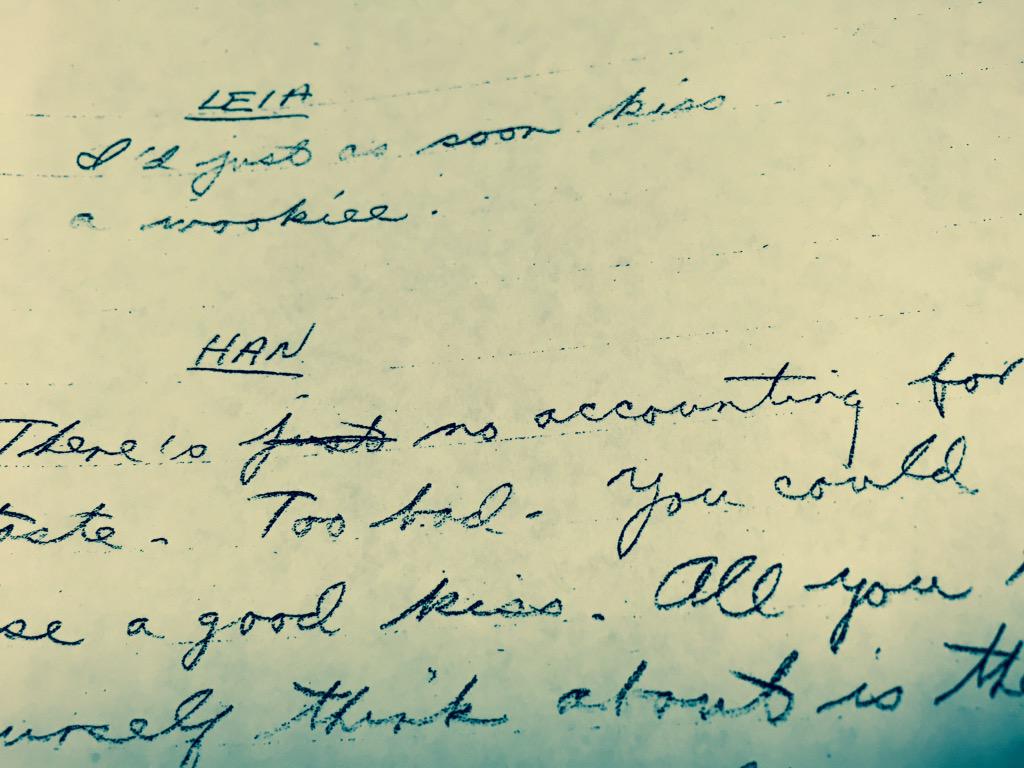 LEIA
I'd just as soon kiss
a wookiee.
HAN
There's just no accounting for
taste. Too bad. You could
se a good kiss. All you
urself think about is the